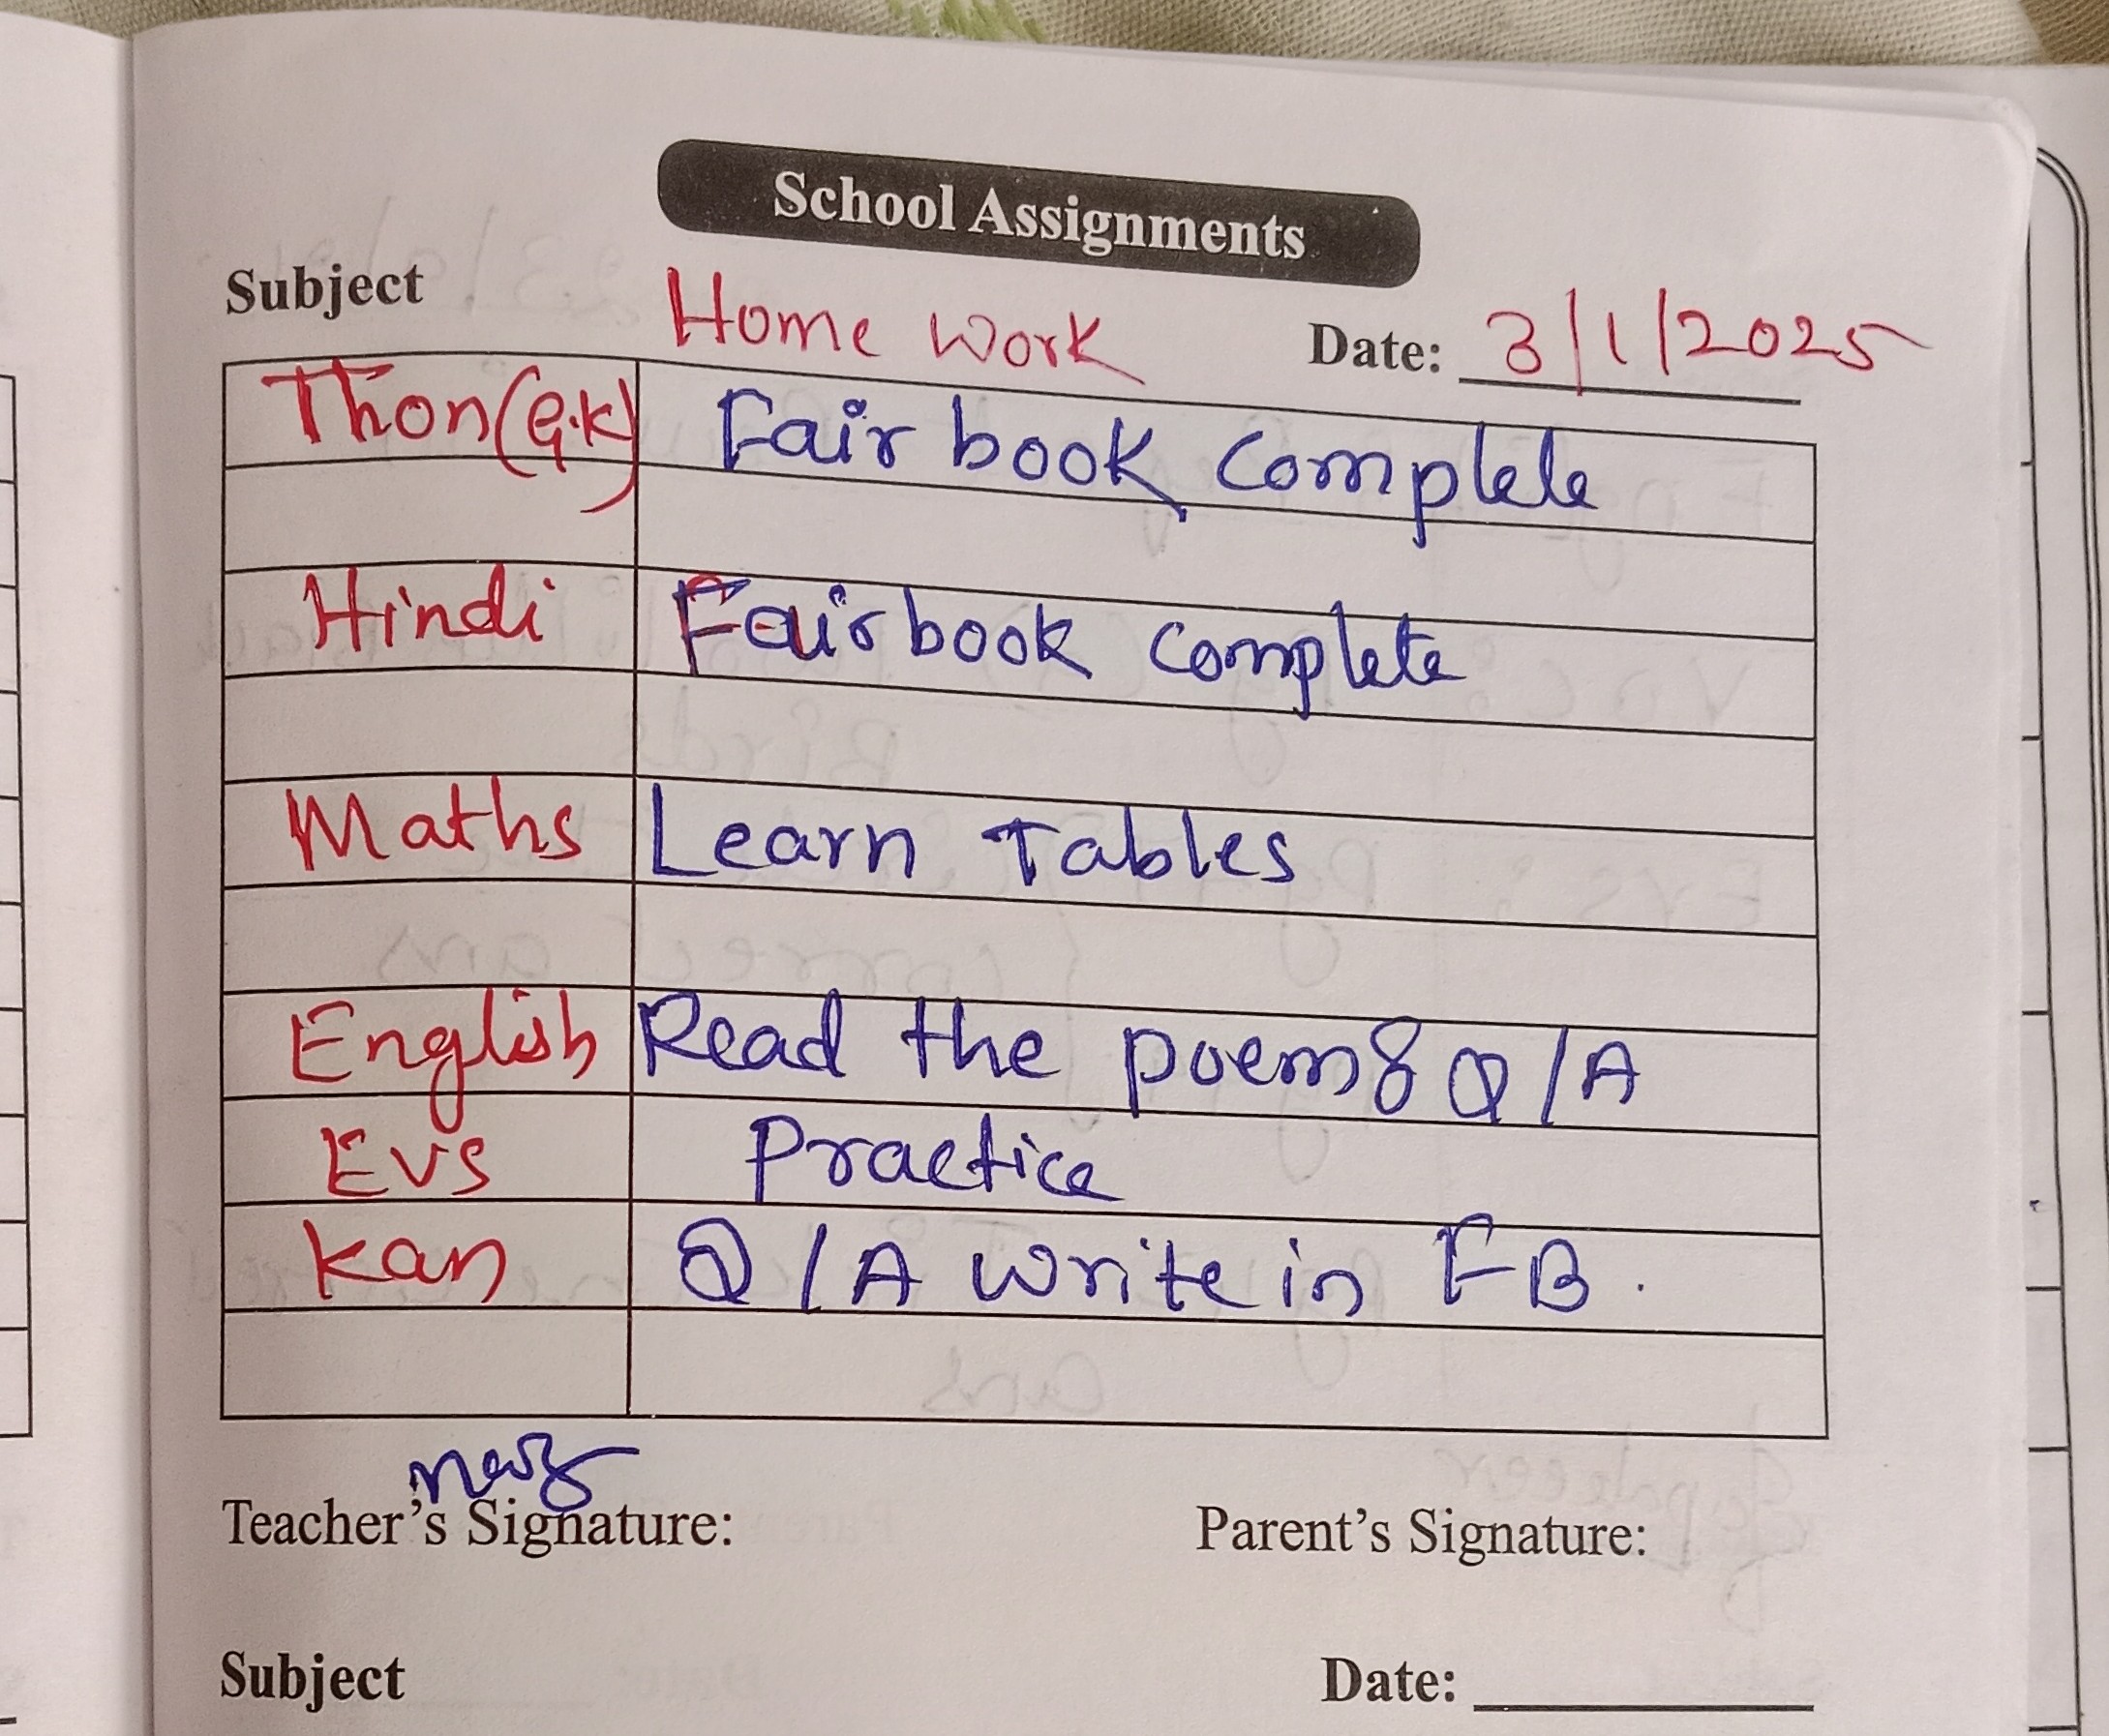 School Assignments
Subject Home Work Date: 3/1/2025
Thon(G.K) Fair book complete
Hindi Fair book complete
Maths Learn Tables
English Read the poem & Q/A
Evs Practice
Kan Q/A write in FB.
Teacher's Signature: Parent's Signature:
Subject Date: